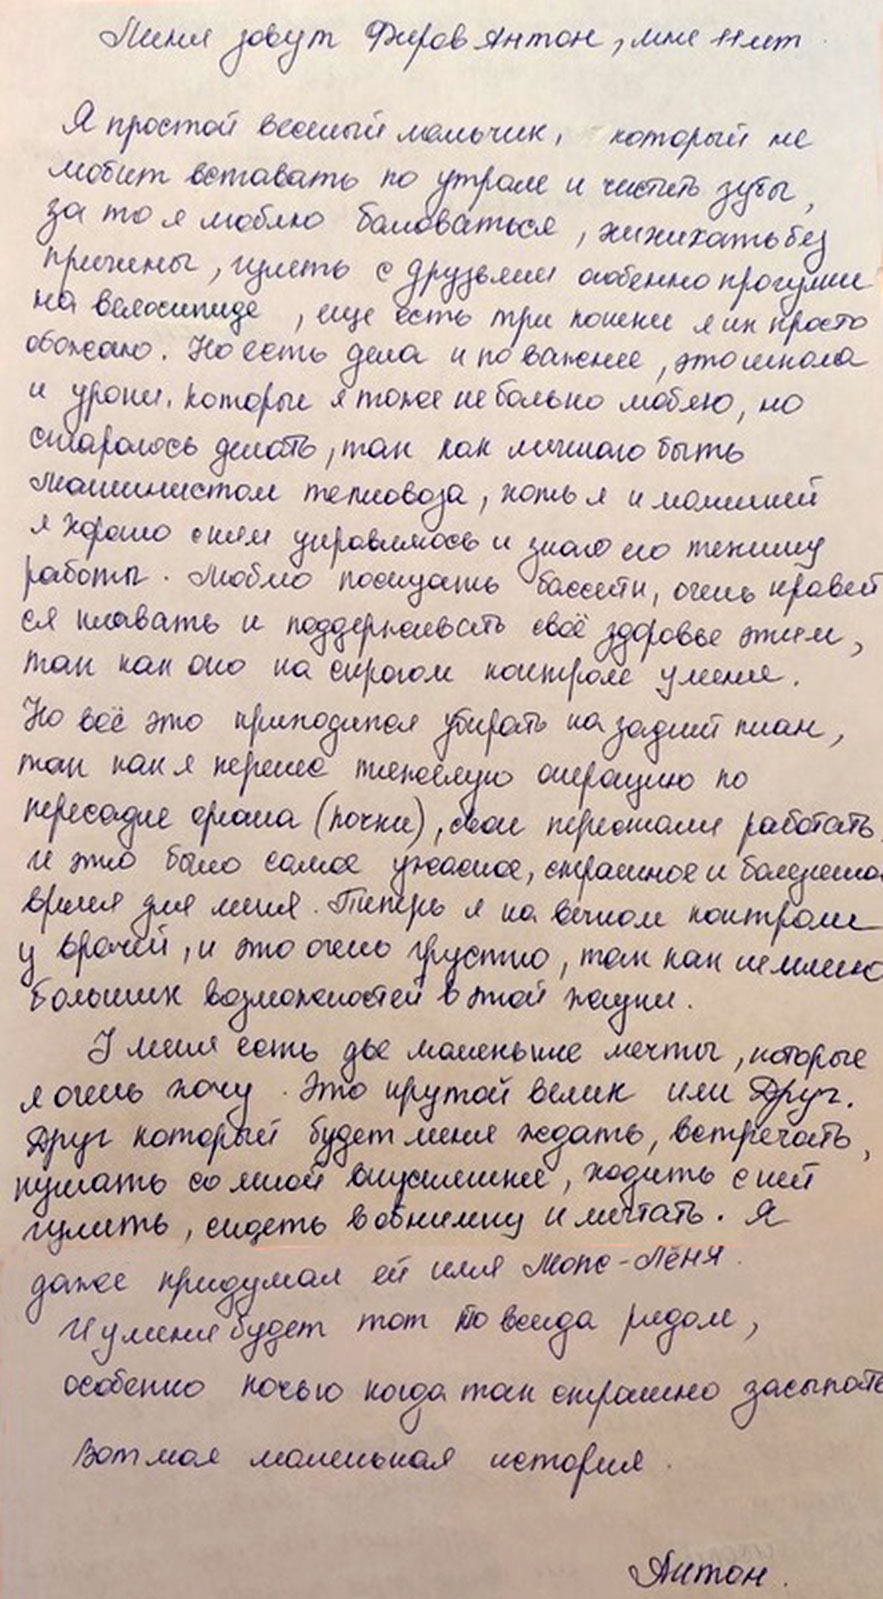 Меня зовут Фиров Антон, мне 11 лет.
Я простой веселый мальчик, который не
любит вставать по утрам и чистить зубы,
за то я люблю баловаться, хихикать без
причины, гулять с друзьями особенно прогулки
на велосипиде, еще есть три кошки я их просто
обожаю. Но есть дела и по важнее, это школа
и уроки. которые я тоже не больно люблю, но
стараюсь делать, так как мечтаю быть
машинистом тепловоза, хоть я и малинький
я хорошо с ним управляюсь и знаю его технику
работы. Люблю посещать бассейн, очень нравит
ся плавать и поддерживать своё здоровье этим,
так как оно на строгом контроле у меня.
Но всё это приходится убирать на задний план,
так как я перенес тяжелую операцию по
пересадке органа (почки), свои перестали работать.
и это было самое ужасное, страшное и болезненое
время для меня. Типерь я на вечном контроле
у врачей, и это очень грустно, так как не имею
больших возможностей в этой жизни.
У меня есть две маленькие мечты, которые
я очень хочу. Это крутой велик или Друг.
Друг который будет меня ждать, встречать,
кушать со мной вкусняшки, ходить с ней
гулять, сидеть в обнимку и мечтать. Я
даже придумал ей имя Мопс-Лёня.
И у меня будет тот кто всегда рядом,
особенно ночью когда так страшно засыпать
Вот моя маленькая история.
Антон.